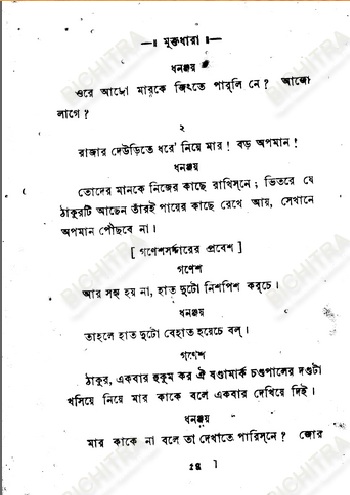 —॥ মুক্তধারা ॥—
ধনঞ্জয়
ওরে আজো মারকে জিততে পারলি নে? আজো
লাগে?
২
রাজার দেউড়িতে ধরে' নিয়ে মার! বড় অপমান!
ধনঞ্জয়
তোদের মানকে নিজের কাছে রাখিস্‌নে; ভিতরে যে
ঠাকুরটি আছেন তাঁরই পায়ের কাছে রেখে আয়, সেখানে
অপমান পৌঁছবে না।
[ গণেশসর্দ্দারের প্রবেশ ]
গণেশ
আর সহ্য হয় না, হাত দুটো নিশপিশ করচে।
ধনঞ্জয়
তাহলে হাত দুটো বেহাত হয়েচে বল্।
গণেশ
ঠাকুর, একবার হুকুম কর ঐ ষণ্ডামার্ক চণ্ডপালের দণ্ডটা
খসিয়ে নিয়ে মার কাকে বলে একবার দেখিয়ে দিই।
ধনঞ্জয়
মার কাকে না বলে তা দেখাতে পারিস্‌নে? জোর
BICHITRA